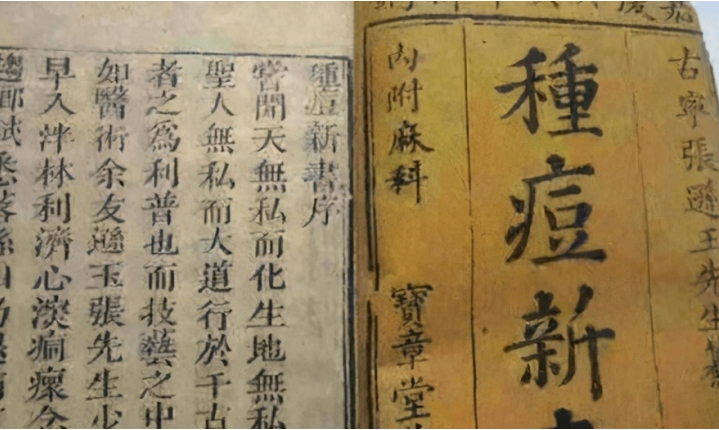 古寧張遜王先生
種痘新
內附麻科
寶章堂
種痘新書序
嘗聞天無私而化生地無私
聖人無私而大道行於千古
者之為利普也而技藝之中
如醫術余友遜玉張先生少
早入泮林利濟心深痌瘝念
郡試悉落孫